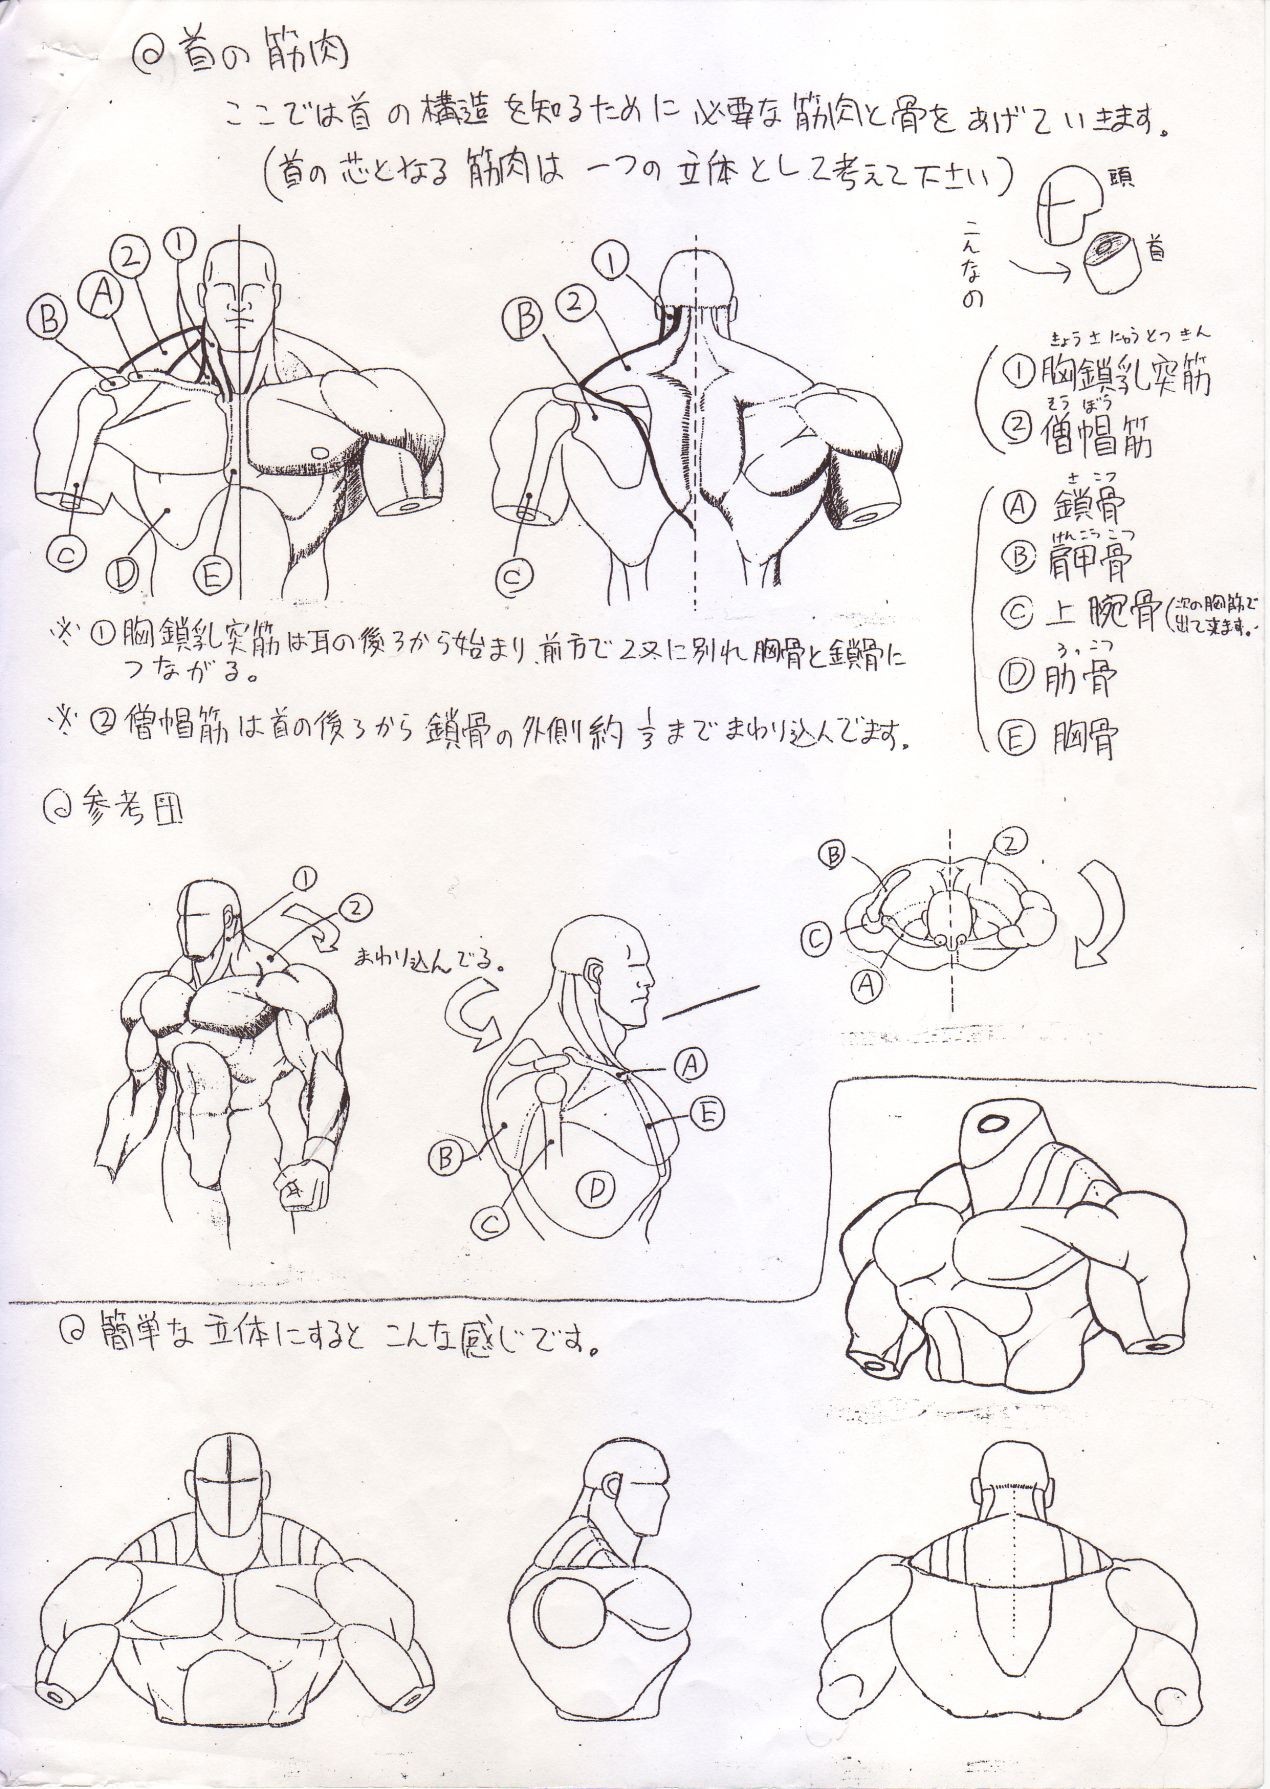 @首の筋肉
ここでは首の構造を知るために必要な筋肉と骨をあげていきます。
(首の芯となる筋肉は一つの立体として考えて下さい)
頭
首
こんなの
1
2
A
B
C
D
E
1
2
B
C
きょうさにゅうとつきん
①胸鎖乳突筋
そうぼう
②僧帽筋
さこつ
Ⓐ鎖骨
けんこうこつ
Ⓑ肩甲骨
Ⓒ上腕骨(次の胸筋で出て来ます。)
ろっこつ
Ⓓ肋骨
Ⓔ胸骨
※①胸鎖乳突筋は耳の後ろから始まり、前方で2又に別れ胸骨と鎖骨に
つながる。
※②僧帽筋は首の後ろから鎖骨の外側約1/3までまわり込んでます。
@参考図
1
2
まわり込んでる。
A
E
B
C
D
B
2
C
A
@簡単な立体にするとこんな感じです。